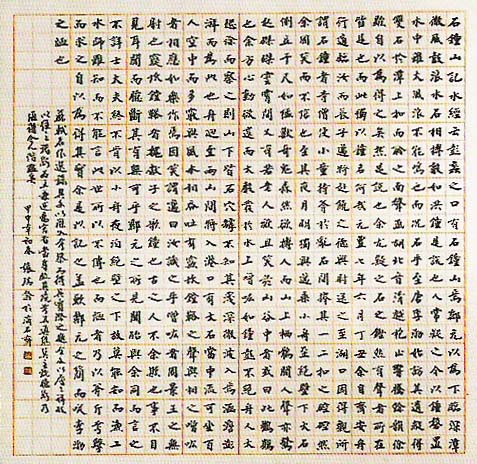 石鐘山記水經云彭蠡之口有石鐘山焉酈元以為下臨深潭
微風鼓浪水石相搏聲如洪鐘是說也人常疑之今以鐘磬置
水中雖大風浪不能鳴也而況石乎至唐李渤始訪其遺蹤得
雙石於潭上扣而聆之南聲函胡北音清越枹止響騰餘韻徐
歇自以為得之矣然是說也余尤疑之石之鏗然有聲者所在
皆是也而此獨以鐘名何哉元豐七年六月丁丑余自齊安舟
行適臨汝而長子邁將赴饒之德興尉送之至湖口因得觀所
謂石鐘者寺僧使小童持斧於亂石間擇其一二扣之硿硿然
余固笑而不信也至其夜月明獨與邁乘小舟至絕壁下大石
側立千尺如猛獸奇鬼森然欲搏人而山上棲鶻聞人聲亦驚
起磔磔雲霄間又有若老人欬且笑於山谷中者或曰此鸛鶴
也余方心動欲還而大聲發於水上噌吰如鐘鼓不絕舟人大
恐徐而察之則山下皆石穴罅不知其淺深微波入焉涵澹澎
湃而為此也舟迴至兩山間將入港口有大石當中流可坐百
人空中而多竅與風水相吞吐有窾坎鏜鞳之聲與向之噌吰
者相應如樂作焉因笑謂邁曰汝識之乎噌吰者周景王之無
射也窾坎鏜鞳者魏獻子之歌鐘也古之人不余欺也事不目
見耳聞而臆斷其有無可乎酈元之所見聞殆與余同而言之
不詳士大夫終不肯以小舟夜泊絕壁之下故莫能知而漁工
水師雖知而不能言此世所以不傳也而陋者乃以斧斤考擊
而求之自以為得其實余是以記之蓋歎酈元之簡而笑李渤
之陋也
蘇軾名作選讀
甲申年初春張瑞